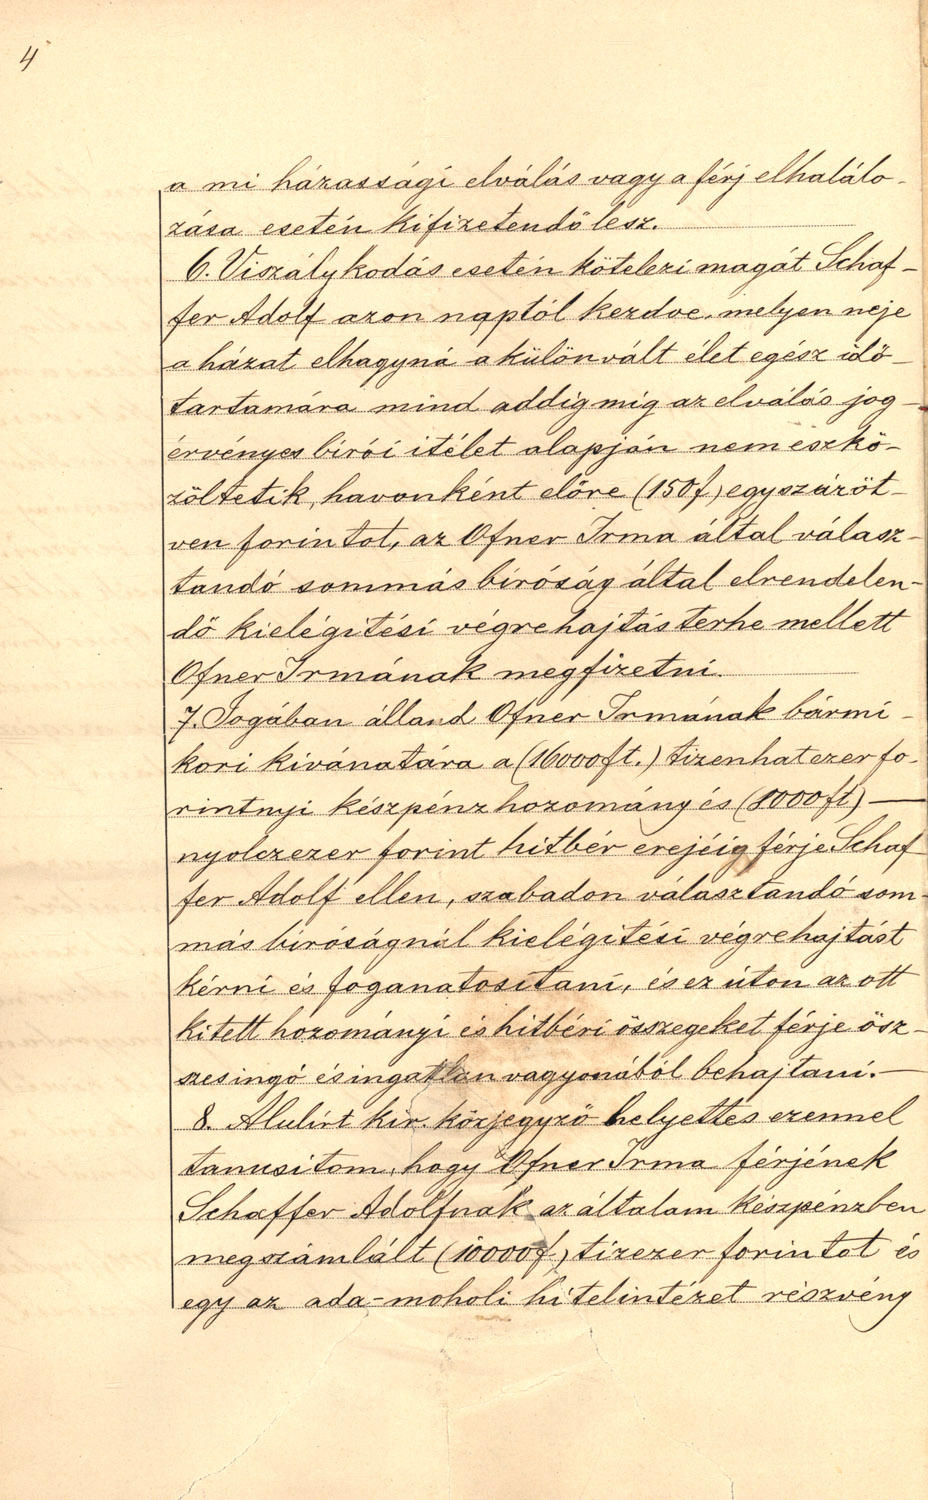 4
a mi házassági elválás vagy a férj elhalálo-
zása esetén kifizetendő lesz.
6. Viszálykodás esetén kötelezi magát Schaf-
fer Adolf azon naptól kezdve, melyen neje
a házat elhagyná a különvált élet egész idő-
tartamára mind addig mig az elválás jog-
érvényes birói itélet alapján nem eszkö-
zöltetik, havonként előre (150f) egyszázöt-
ven forintot, az Ofner Irma által válasz-
tandó sommás biróság által elrendelen-
dő kielégitési végrehajtás terhe mellett
Ofner Irmának megfizetni.
7. Jogában álland Ofner Irmának bármi-
kori kivánatára a (16000ft.) tizenhatezer fo-
rintnyi készpénz hozomány és (8000ft) —
nyolczezer forint hitbér erejéig férje Schaf
fer Adolf ellen, szabadon választandó som-
más biróságnál kielégitési végrehajtást
kérni és foganatositani, és ez úton az ott
kitett hozományi és hitbéri összegeket férje ösz-
szes ingó és ingatlan vagyonából behajtani. —
8. Alulirt kir. közjegyző helyettes ezennel
tanusitom, hogy Ofner Irma férjének
Schaffer Adolfnak az általam készpénzben
megszámlált (10000f) tizezer forintot és
egy az ada-moholi hitelintézet részvény